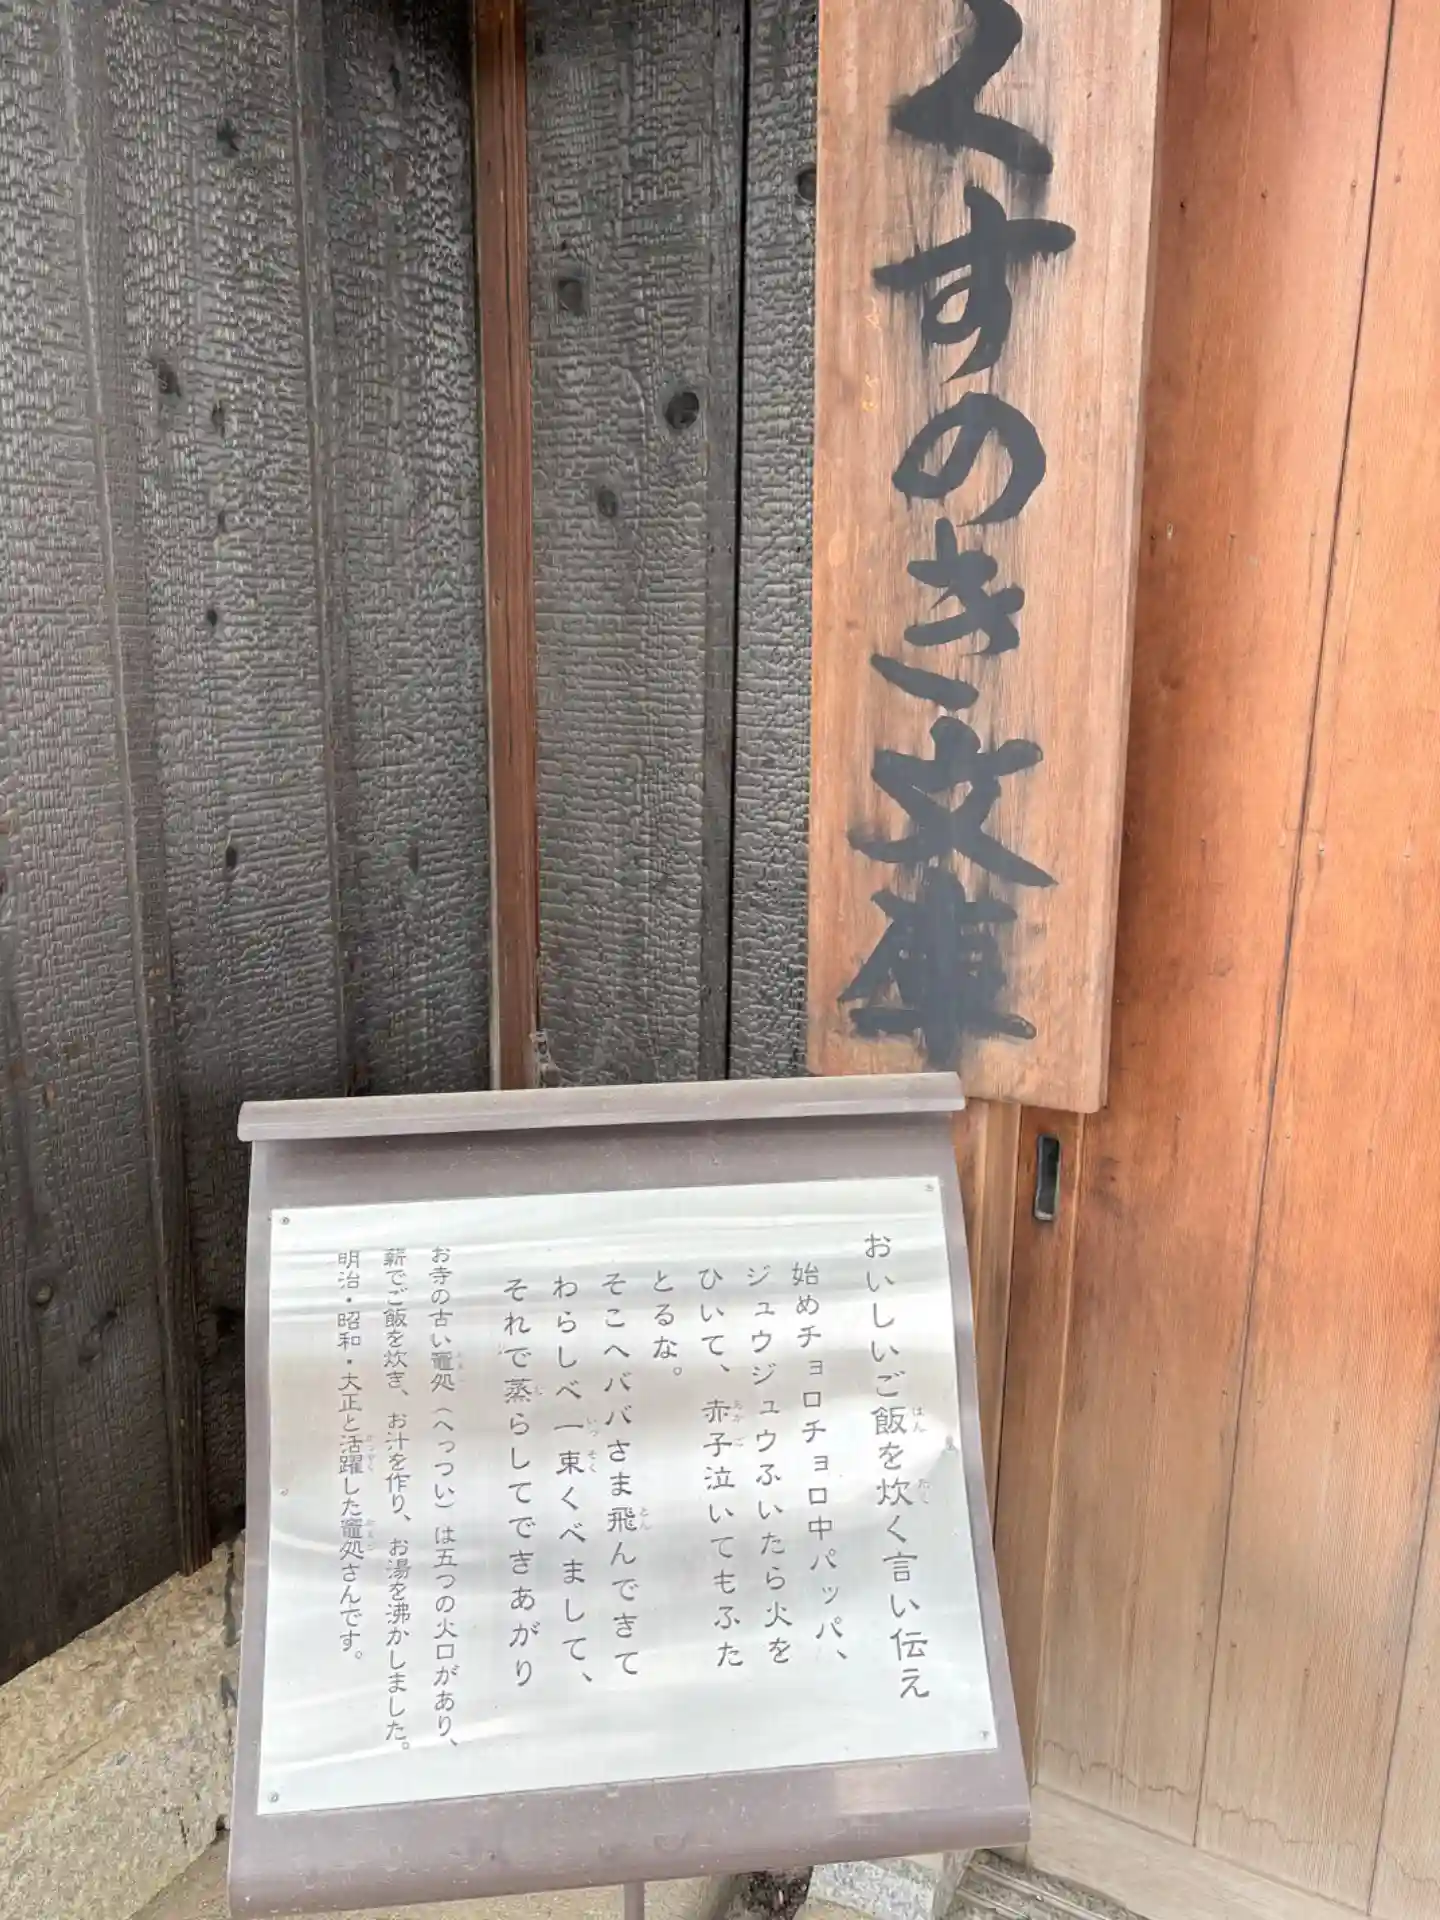 くすのき文庫
おいしいご飯を炊く言い伝え
始めチョロチョロ中パッパ、
ジュウジュウふいたら火を
ひいて、赤子泣いてもふた
とるな。
そこへババさま飛んできて
わらしべ一束くべまして、
それで蒸らしてできあがり
お寺の古い竈処（へっつい）は五つの火口があり、
薪でご飯を炊き、お汁を作り、お湯を沸かしました。
明治・昭和・大正と活躍した竈処さんです。